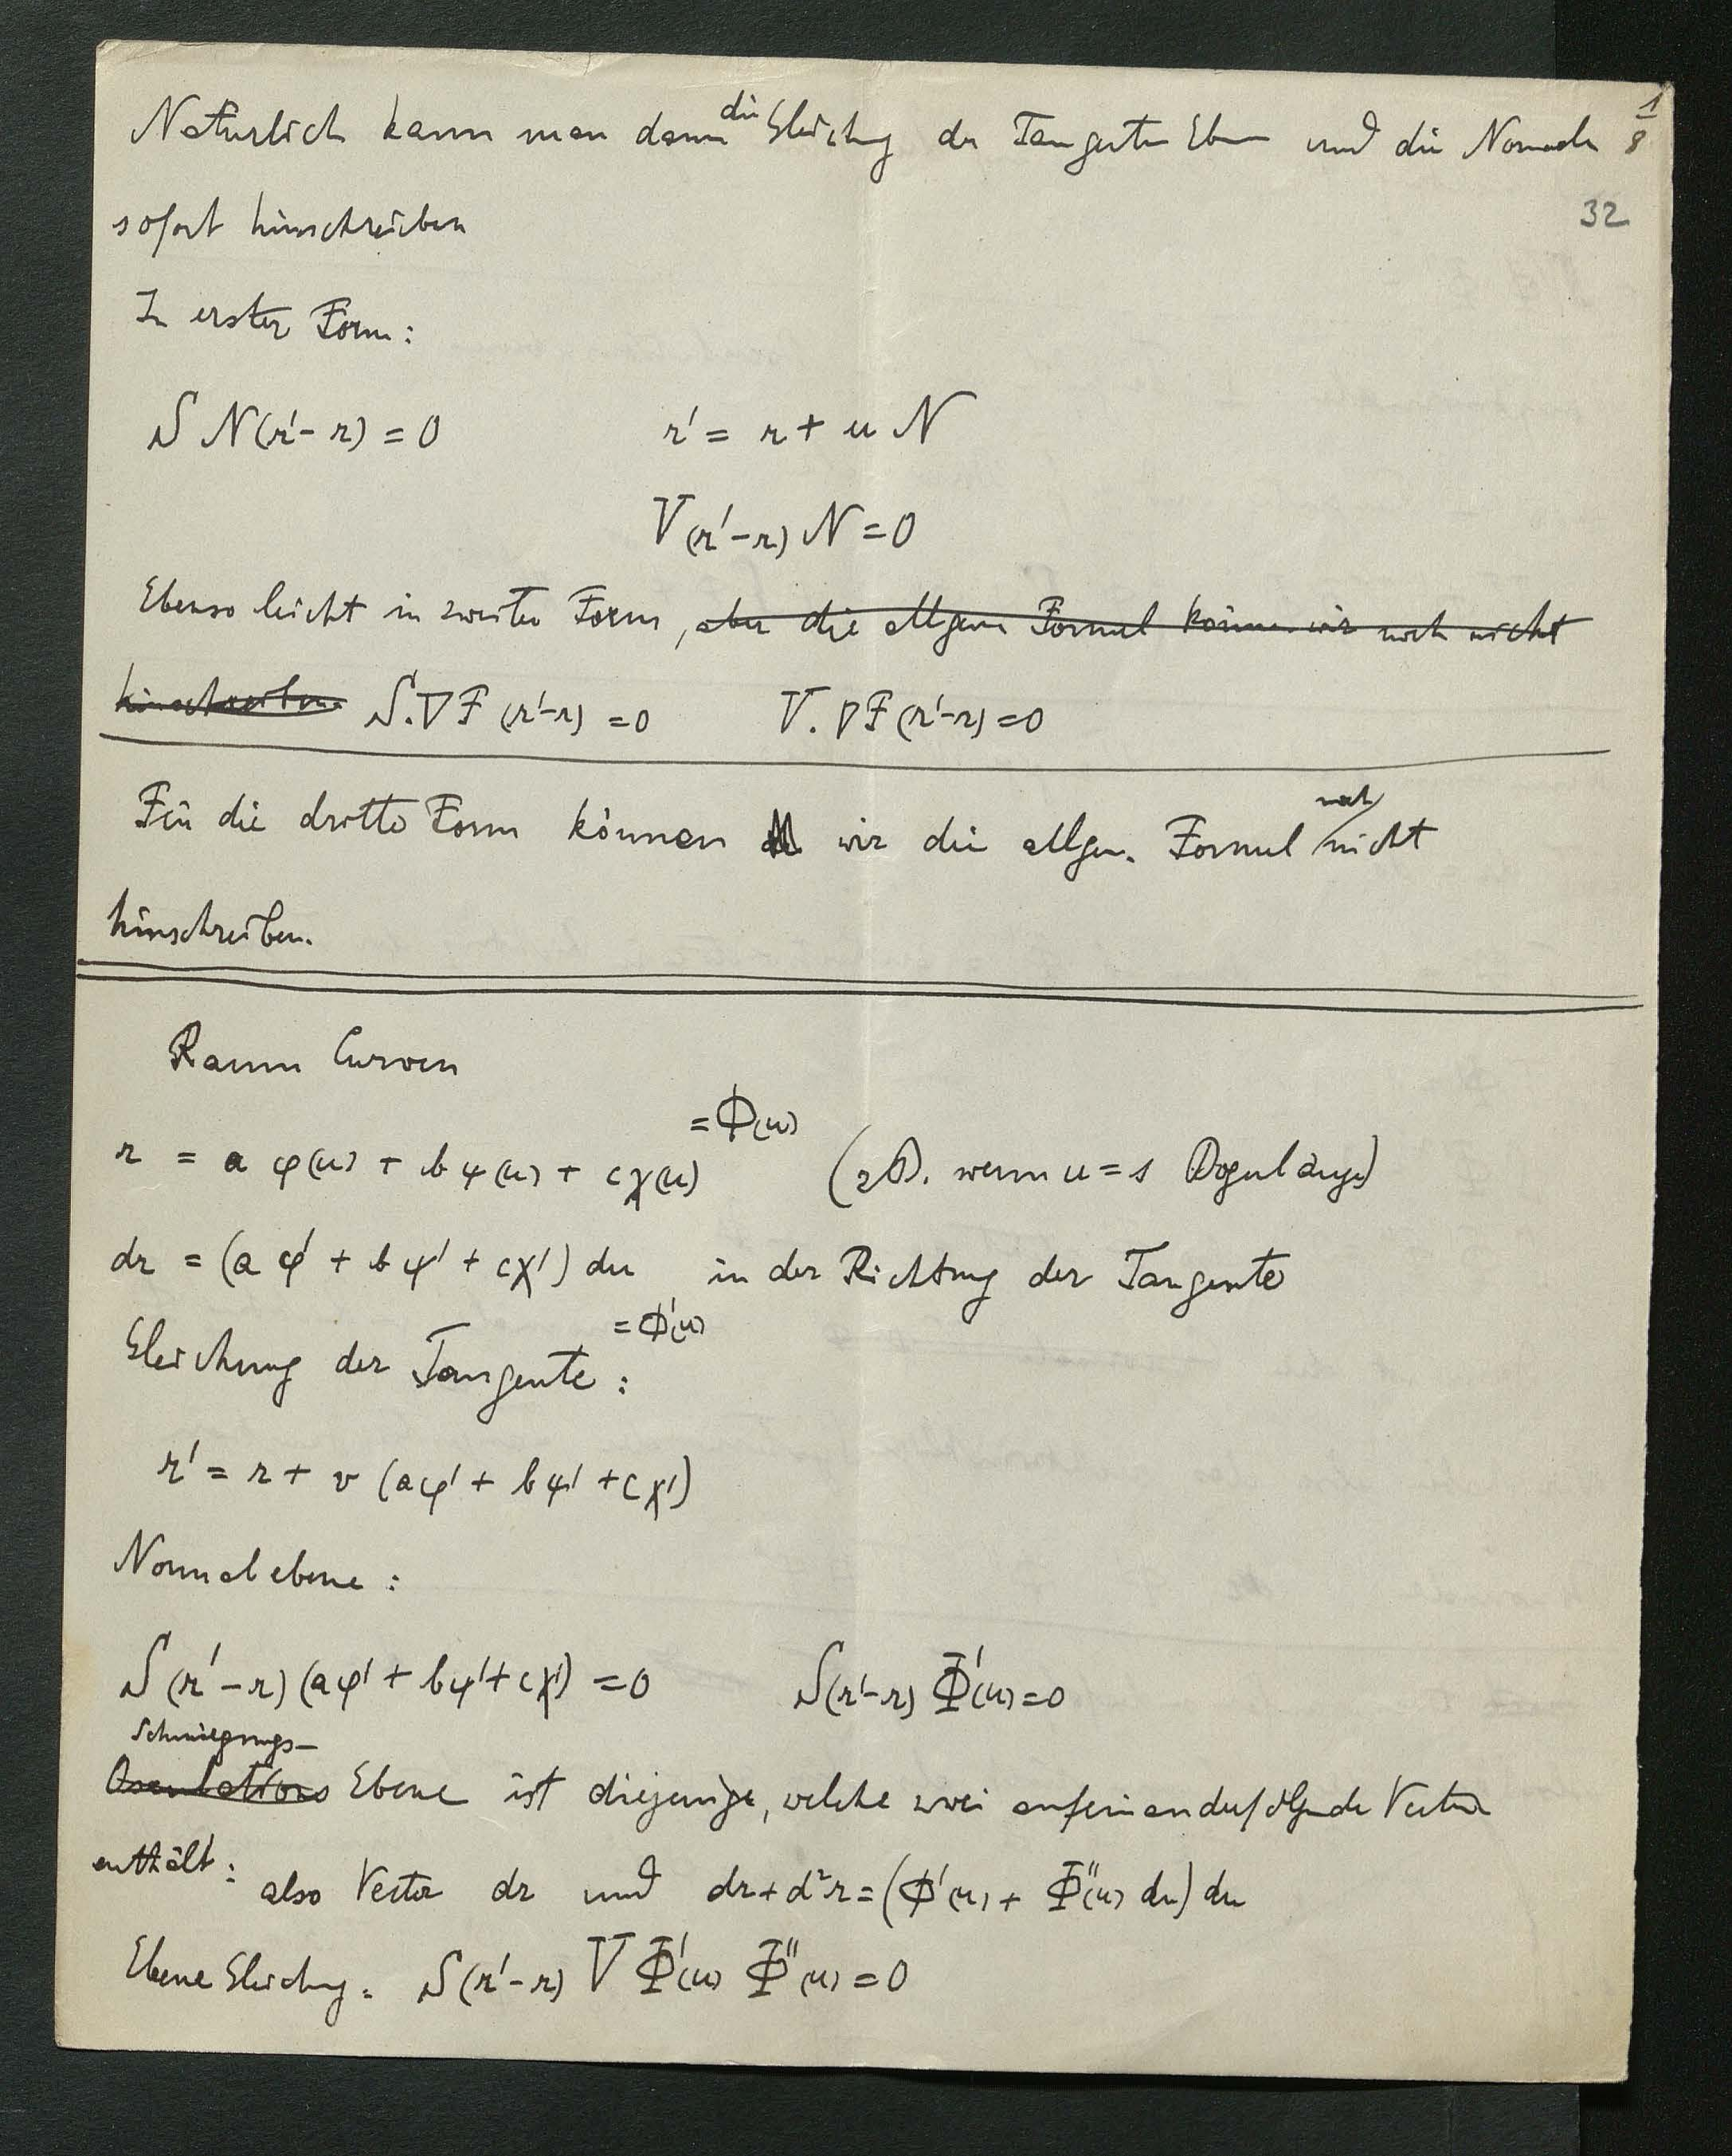 Natürlich kann man dann die Gleichung der Tangenten Ebene und die Normale 1/8
sofort hinschreiben
32
In erster Form:
S N(r'-r) = 0 r' = r + u N
V(r'-r) N = 0
Ebenso leicht in zweiter Form, aber die allgem Formel können wir noch nicht
hinschreiben S.∇F (r'-r) = 0 V.∇F(r'-r) = 0
Für die dritte Form können wir die allgem. Formel noch nicht
hinschreiben.
Raum Curven
r = a φ(u) + b ψ(u) + c χ(u) = Φ(u) (zB. wenn u = s Bogenlänge)
dr = (a φ' + b ψ' + c χ') du in der Richtung der Tangente
= Φ'(u)
Gleichung der Tangente:
r' = r + v (aφ' + bψ' + cχ')
Normalebene:
S(r'-r)(aφ' + bψ' + cχ') = 0 S(r'-r) Φ'(u) = 0
Schmiegungs-
Osculations Ebene ist diejenige, welche zwei aufeinanderfolgende Vectoren
enthält: also Vector dr und dr + d²r = (Φ'(u) + Φ''(u) du) du
Ebene Gleichung: S(r'-r) V Φ'(u) Φ''(u) = 0